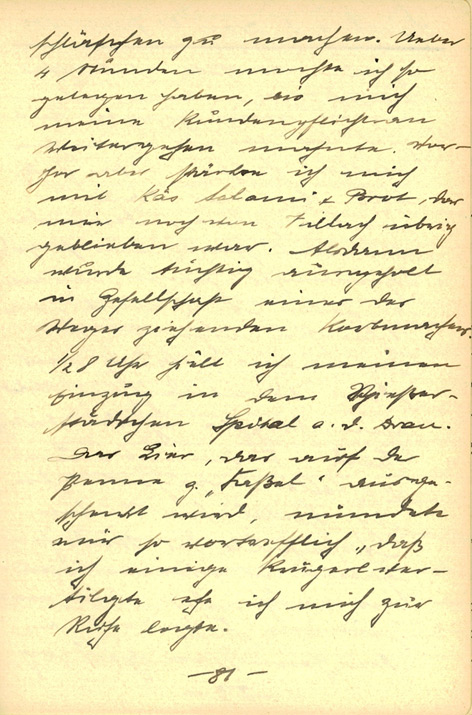 schläfchen zu machen. Ueber
4 Stunden mochte ich so
gelegen haben, bis mich
meine Kundenpflicht an
Weitergehen mahnte. Vor-
her aber stärkte ich mich
mit Käs Salami & Brot, das
mir noch von Villach übrig
geblieben war. Alsdann
wurde tüchtig ausgeholt
in Gesellschaft eines des
Weges ziehenden Korbmachers.
1/2 8 Uhr hielt ich meinen
Einzug in dem
städtchen Spital a. d. Drau.
Das Bier, das auf de
Penne z. "Faßel" ausge-
schenkt wird, mundete
mir so vortrefflich, daß
ich einige Krügerl ver-
tilgte ehe ich mich zur
Ruhe legte.
- 81 -